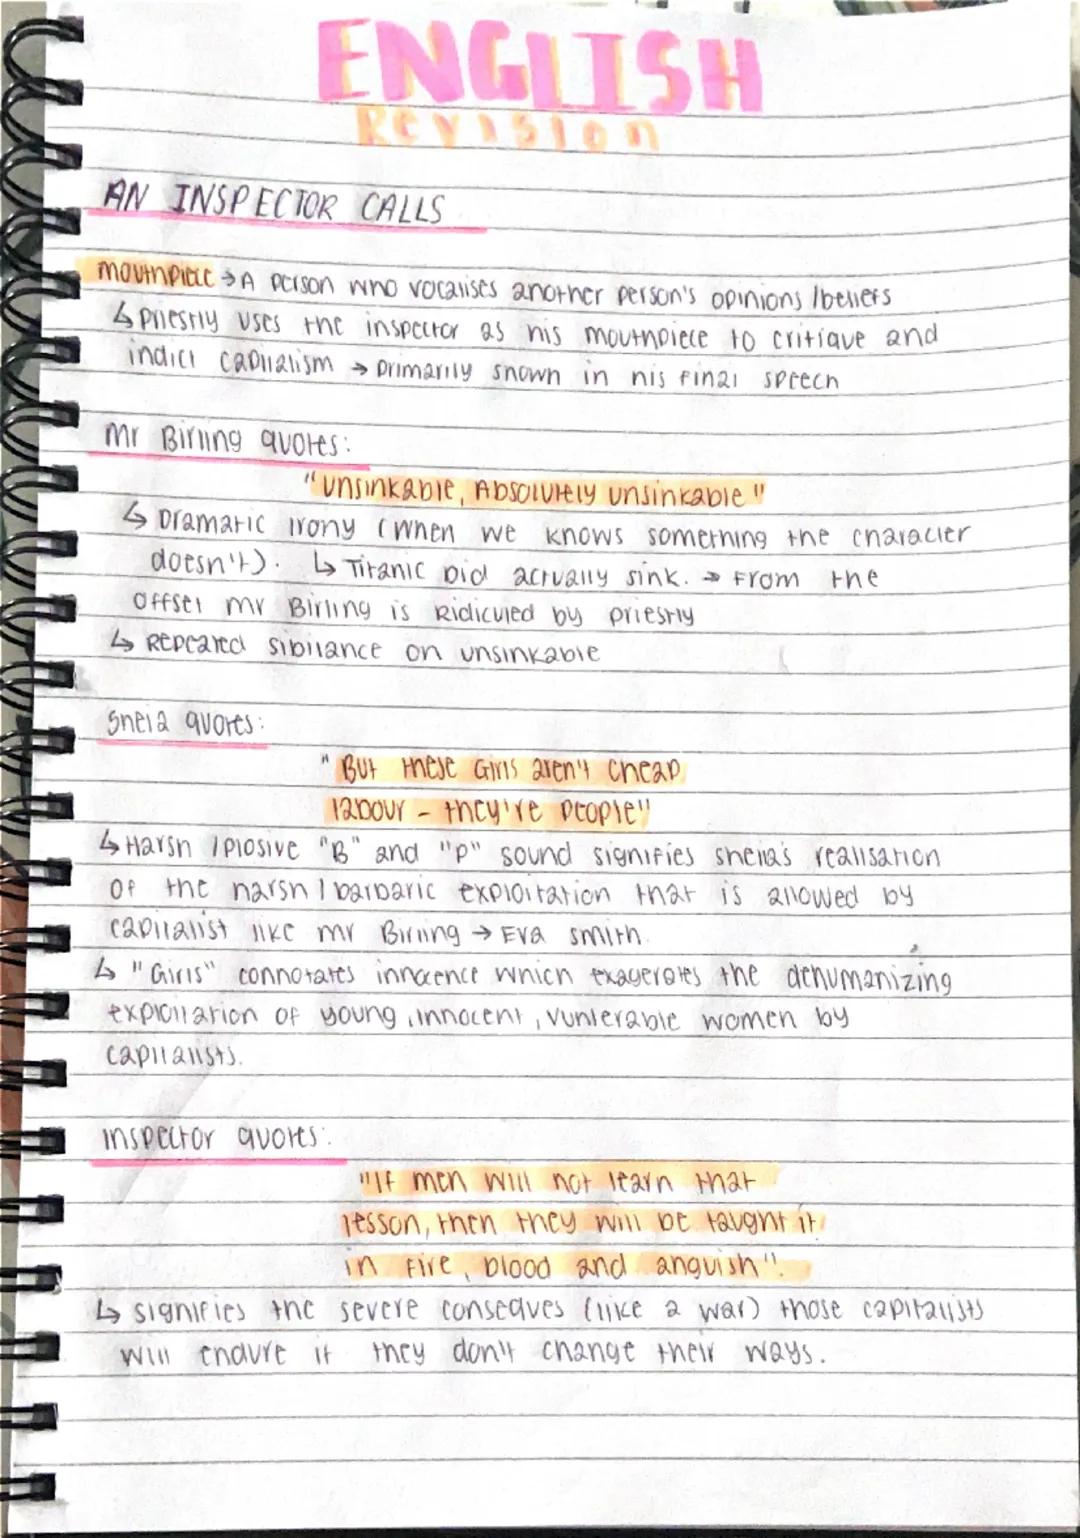 ENGLISH
Revision
AN INSPECTOR CALLS
mouthpiece → A person who vocalises another person's opinions / beliefs
↳ priestly uses the inspector as his mouthpiece to critique and
indict capitalism → primarily shown in his final speech
Mr Birling quotes:
"unsinkable, Absolutely unsinkable"
↳ Dramatic irony (when we knows something the character
doesn't). ↳ Titanic Did actually sink. → From the
offset Mr Birling is Ridiculed by priestly
↳ Repeated sibilance on unsinkable
Shela quotes:
"But these Girls aren't cheap
labour - they're people"
↳ Harsh / plosive "B" and "p" sound signifies sheila's realisation
of the harsh / barbaric exploitation that is allowed by
capitalist like mr Birling → Eva smith.
↳ "Girls" connotates innocence which exagerates the dehumanizing
exploitation of young, innocent, vunlerable women by
capitalists.
inspector quotes:
"If men will not learn that
lesson, then they will be taught it
in fire, blood and anguish".
↳ signifies the severe conseques (like a war) those capitalists
will endure if they don't change their ways.